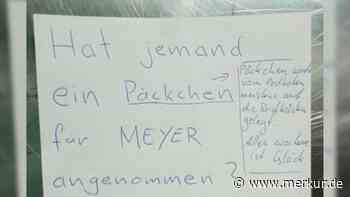 Hat jemand
ein Päckchen
für MEYER
angenommen?
Päckchen wurde
vom Postboten
meistens auf
die Briefkästen
gelegt
Alles andere
ist Glück
www.merkur.de